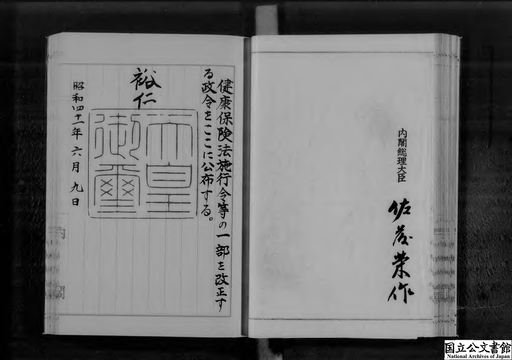 健康保険法施行令等の一部を改正す
る政令をここに公布する。
裕仁
天皇
御璽
昭和四十一年六月九日
内閣総理大臣
佐藤榮作
国立公文書館
National Archives of Japan